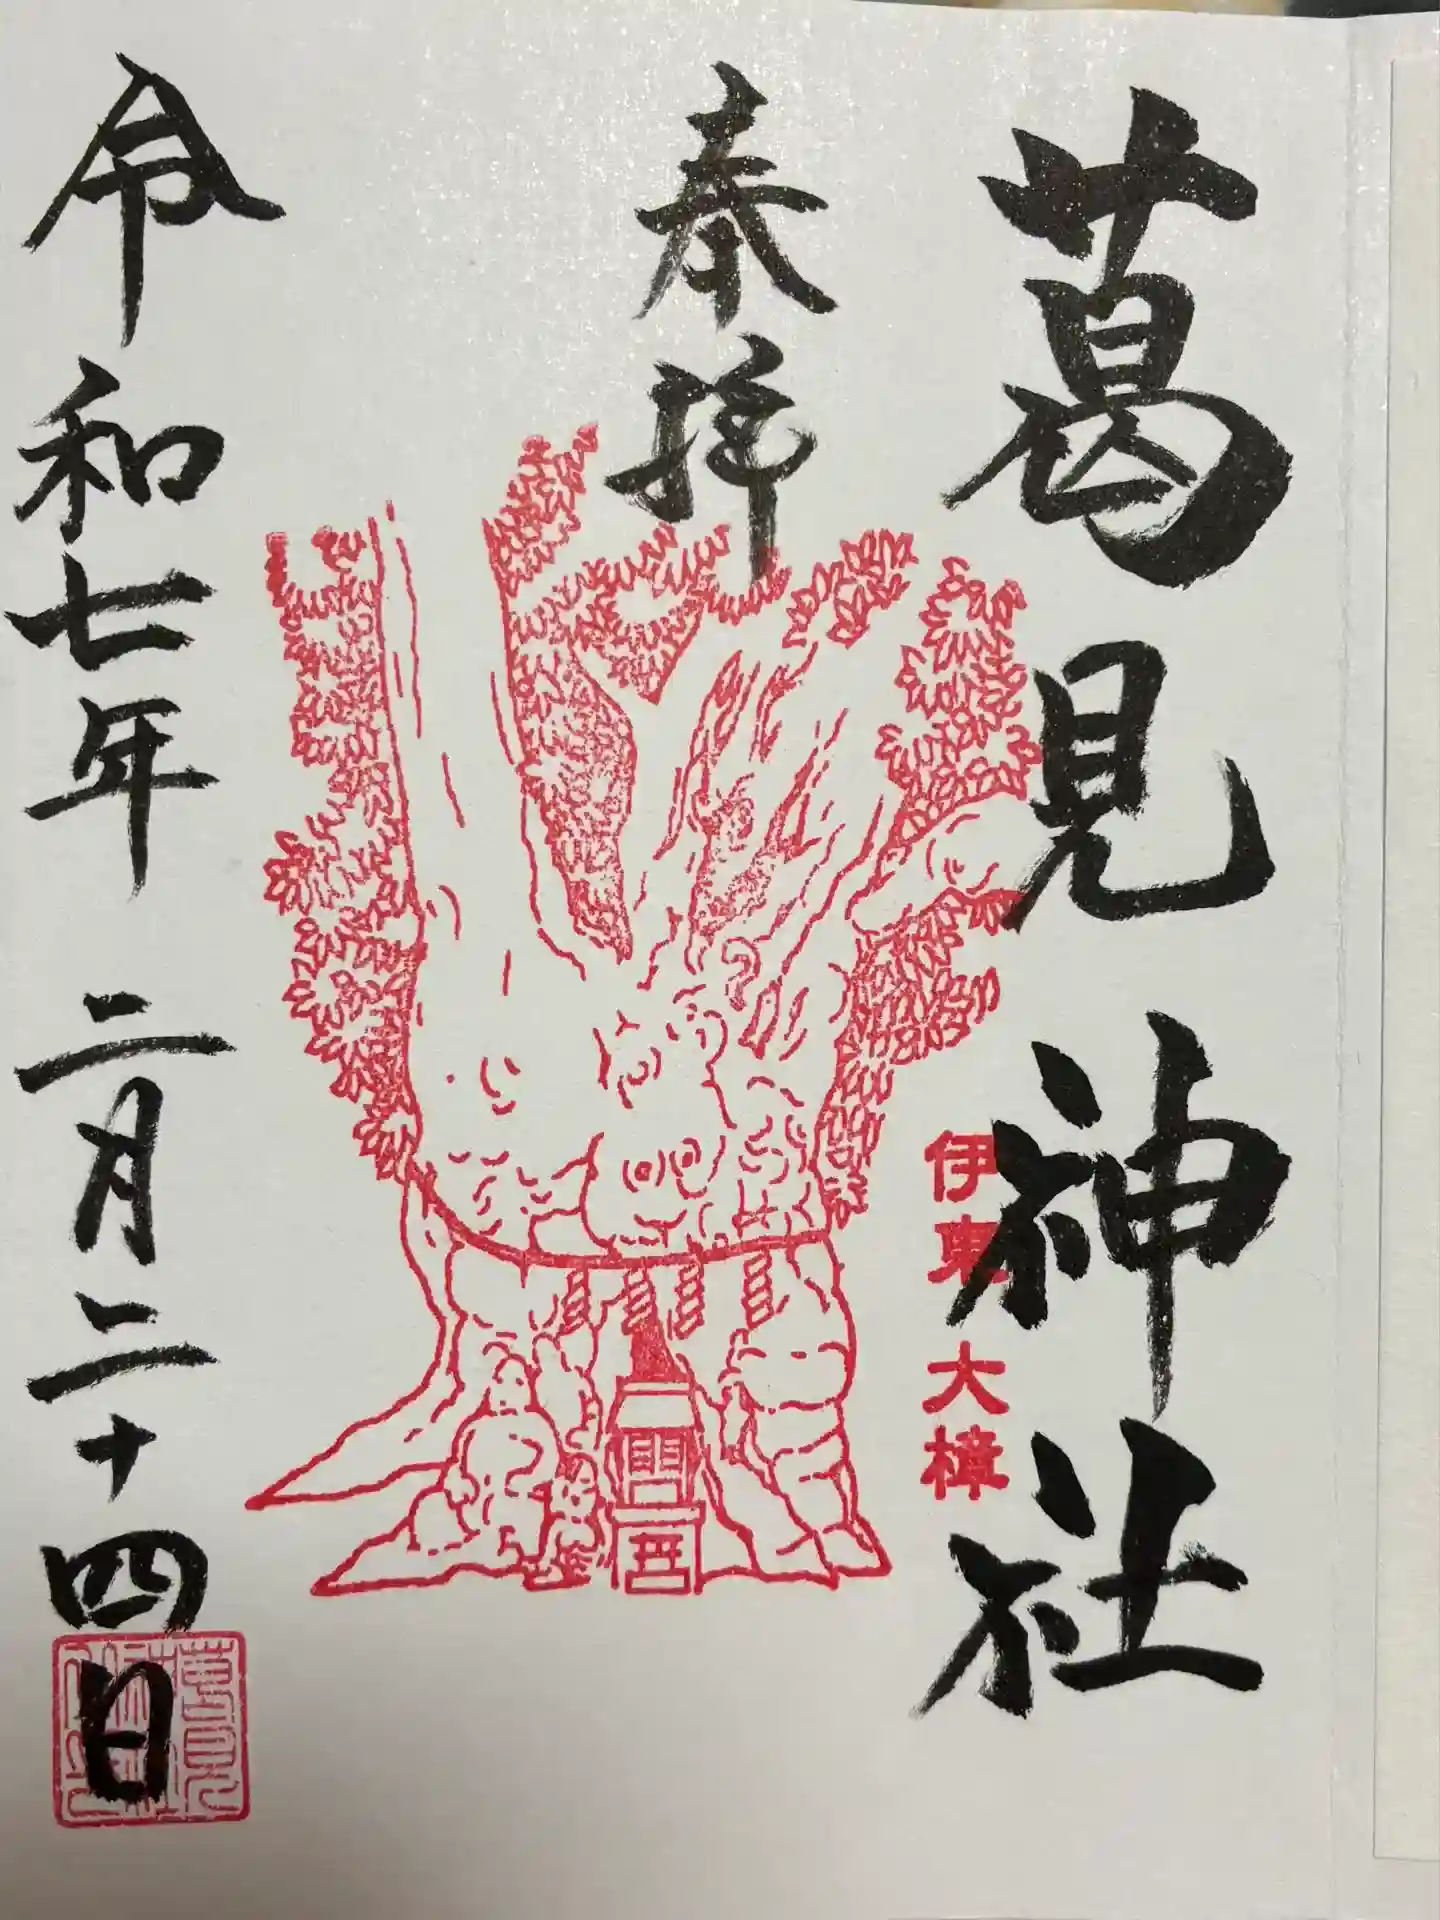 葛見神社
伊東 大樟
奉拝
令和七年 二月二十四日